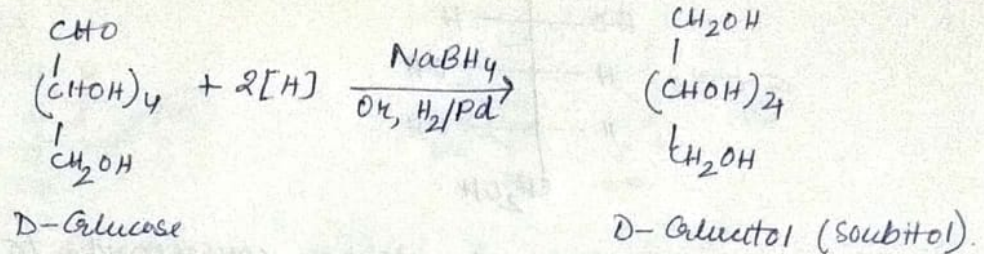 CHO
(CHOH)4 + 2[H] NaBH4 Or, H2/Pd
CH2OH
CH2OH
(CHOH)4
CH2OH
D-Glucose D-Glucitol (Sorbitol).